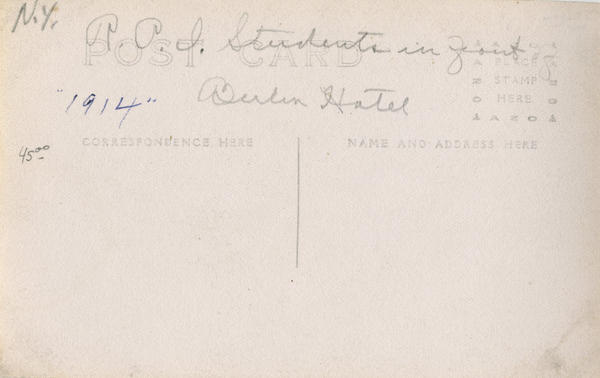 N.Y.
R.P.I. Students in front of
POST CARD
"1914"
Berlin Hotel
AZOA
PLACE
STAMP
HERE
AZOA
45.00
CORRESPONDENCE HERE
NAME AND ADDRESS HERE